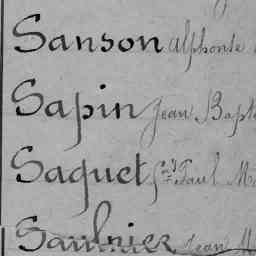 Sanson Alphonse
Sapin Jean Bapt
Saquet Paul M
Saulnier Jean M